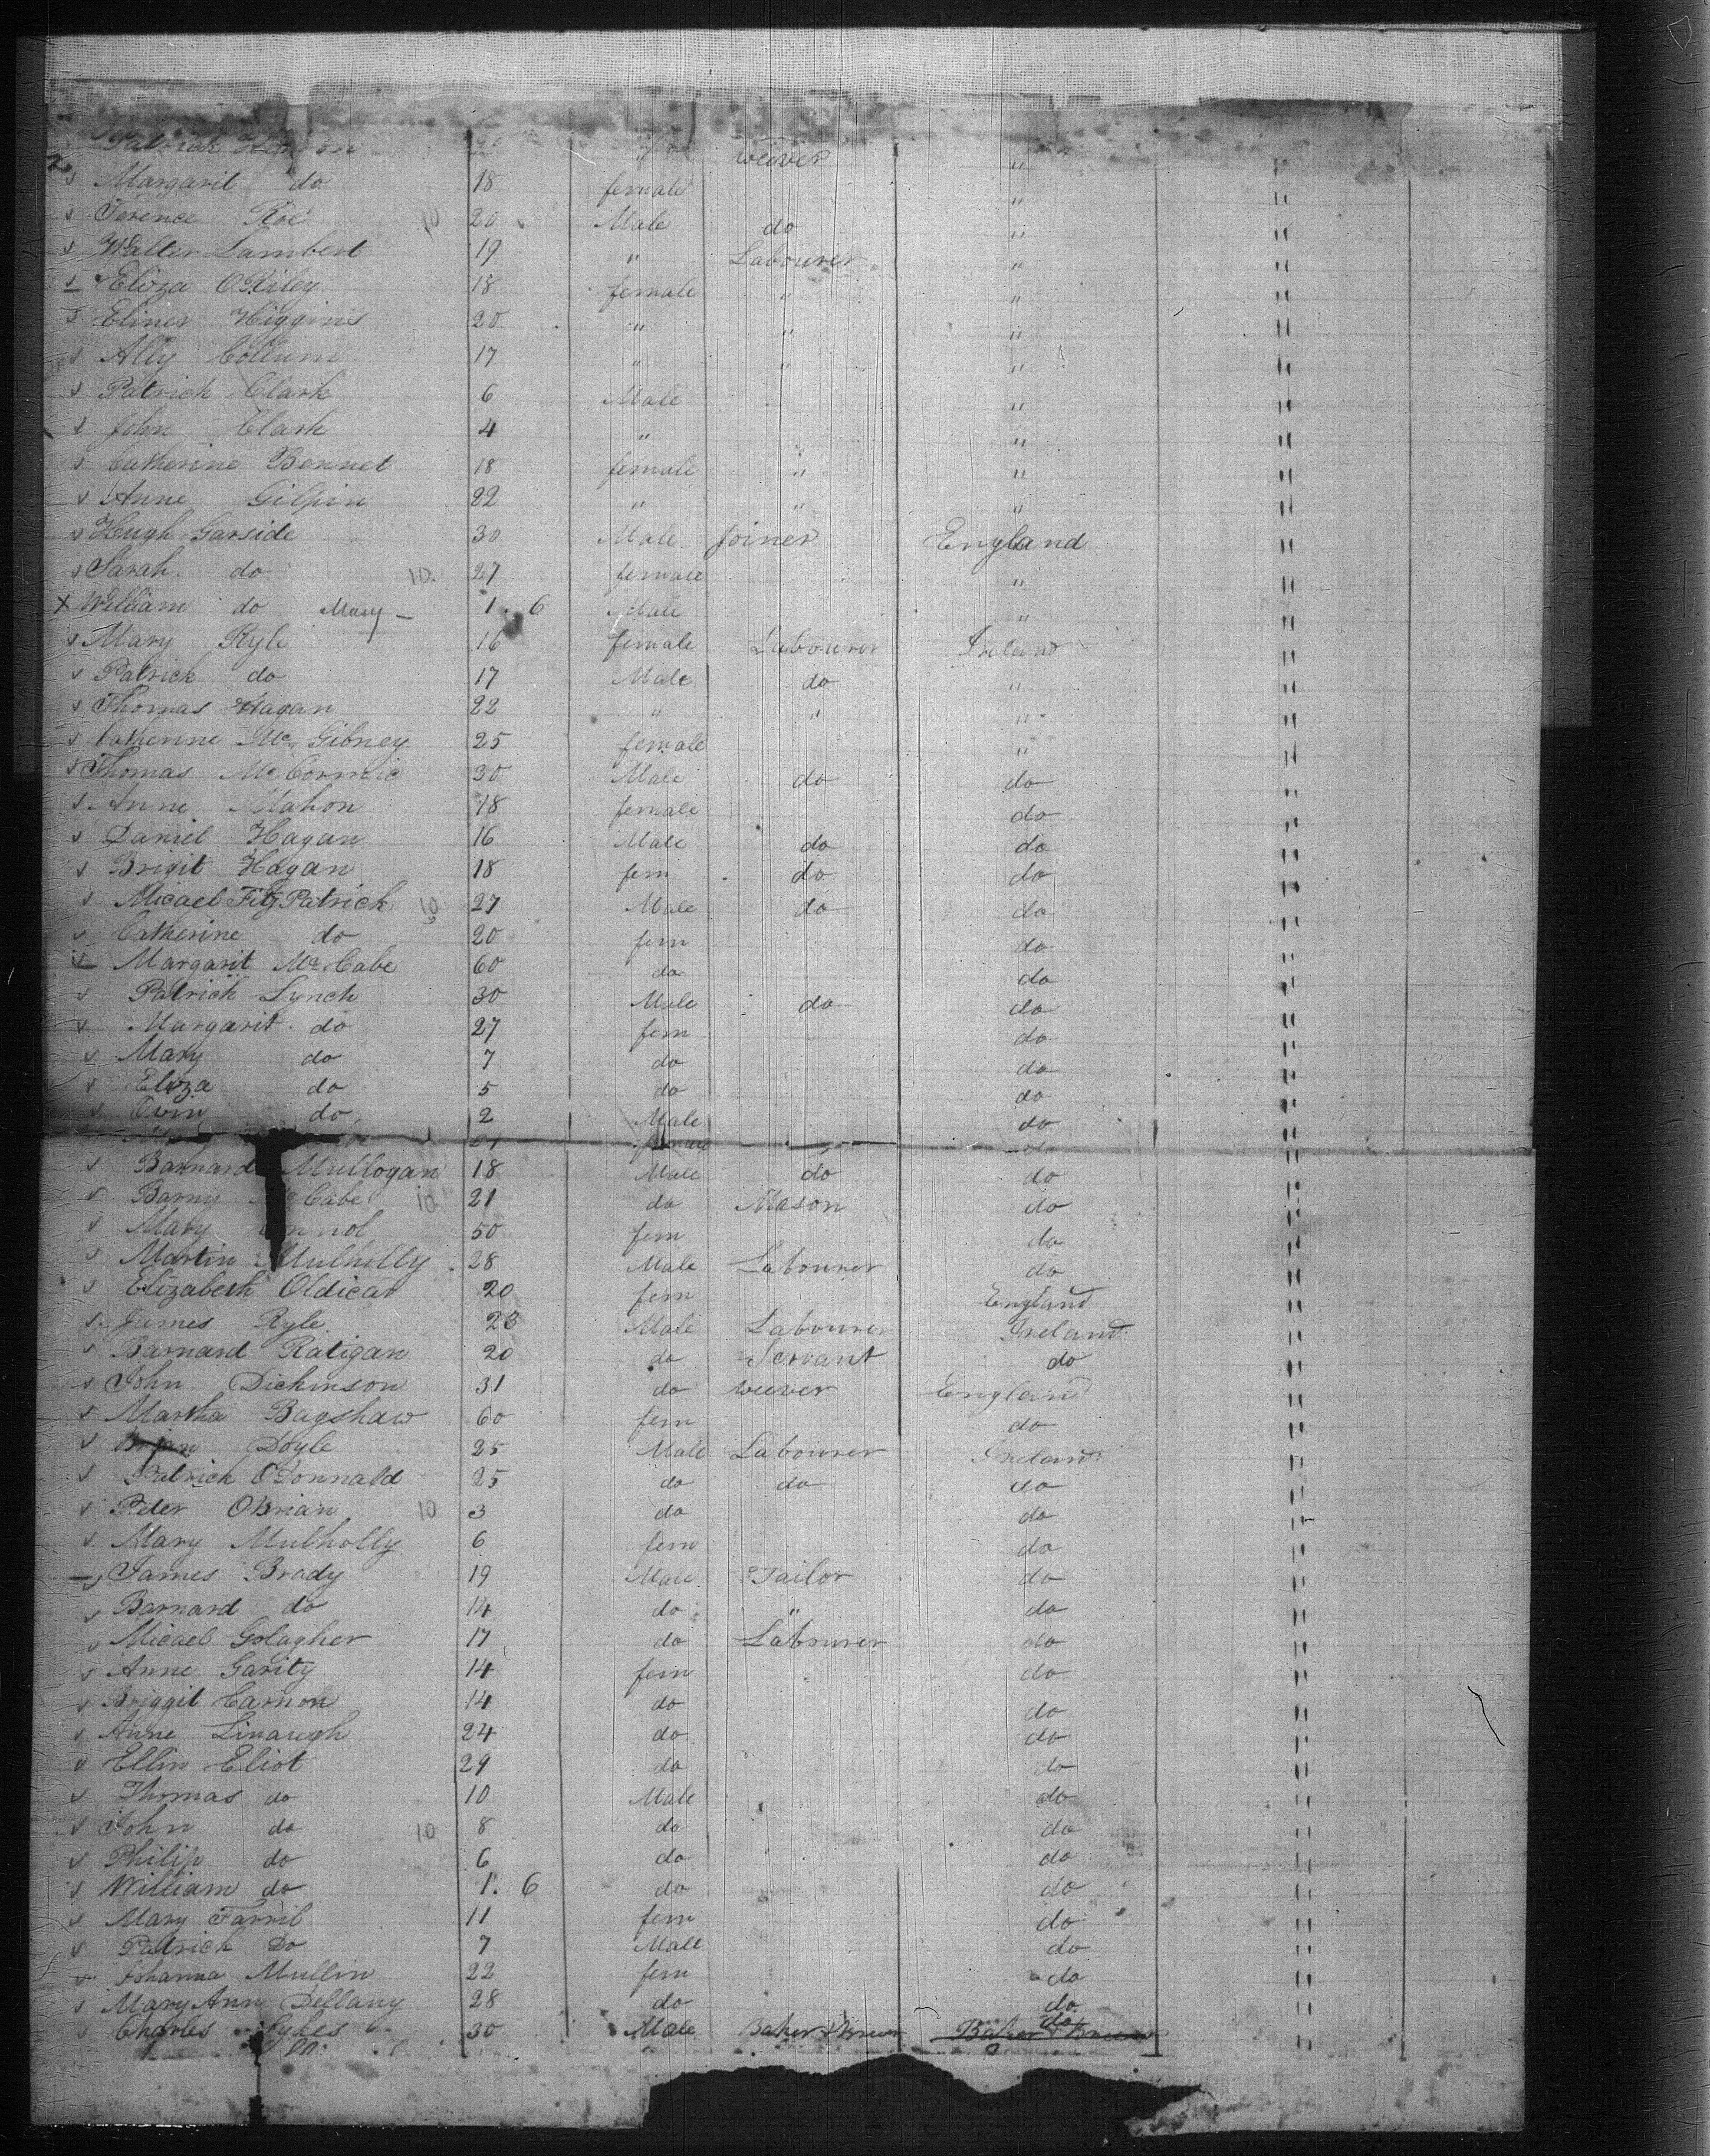 Patrick weaver "
Margarit do 18 female " "
Terence Roe 10 20 Male do " "
Walter Lambert 19 " Labourer " "
Eliza ORiley 18 female " " "
Eliner Higgins 20 " " " "
Ally Collum 17 " " " "
Patrick Clark 6 Male " "
John Clark 4 " " "
Catherine Bennet 18 female " " "
Anne Gilpin 22 " " " "
Hugh Garside 30 Male Joiner England "
Sarah do 10. 27 female " "
X William do Mary - 1. 6 Male " "
Mary Ryle 16 female Labourer Ireland "
Patrick do 17 Male do " "
Thomas Hagan 22 " " " "
Catherine Mc Gibney 25 female " "
Thomas Mc Cormic 30 Male do do "
Anne Mahon 18 female do "
Daniel Hagan 16 Male do do "
Brigit Hagan 18 fem do do "
Micael FitzPatrick 10 27 Male do do "
Catherine do 20 fem do "
Margarit Mc Cabe 60 do do "
Patrick Lynch 30 Male do do "
Margarit do 27 fem do "
Mary do 7 do do "
Eliza do 5 do do "
Owin do 2 Male do "
female do "
Barnard Mullogan 18 Male do do "
Barny Cabe 10 21 do Mason do "
Mary 50 fem do "
Martin Mulholly 28 Male Labourer do "
Elizabeth Oldicar 20 fem England "
James Ryle 23 Male Labourer Ireland "
Barnard Ratigan 20 do Servant do "
John Dickinson 31 do weever England "
Martha Bagshaw 60 fem do "
Doyle 25 Male Labourer Ireland "
Patrick ODonnald 25 do do do "
Peter OBrian 10 3 do do "
Mary Mulholly 6 fem do "
James Brady 19 Male Tailor do "
Barnard do 14 do " do "
Micael Golagher 17 do Labourer do "
Anne Garity 14 fem do "
Briggit Carnon 14 do do "
Anne Linaugh 24 do do "
Ellin Eliot 29 do do "
Thomas do 10 Male do "
John do 10 8 do do "
Philip do 6 do do "
William do 1. 6 do do "
Mary Farril 11 fem do "
Patrick Do 7 Male do "
Johanna Mullin 22 fem do "
Mary Ann Dellany 28 do do "
Charles Sykes 30 Male Baker & Brewer do "